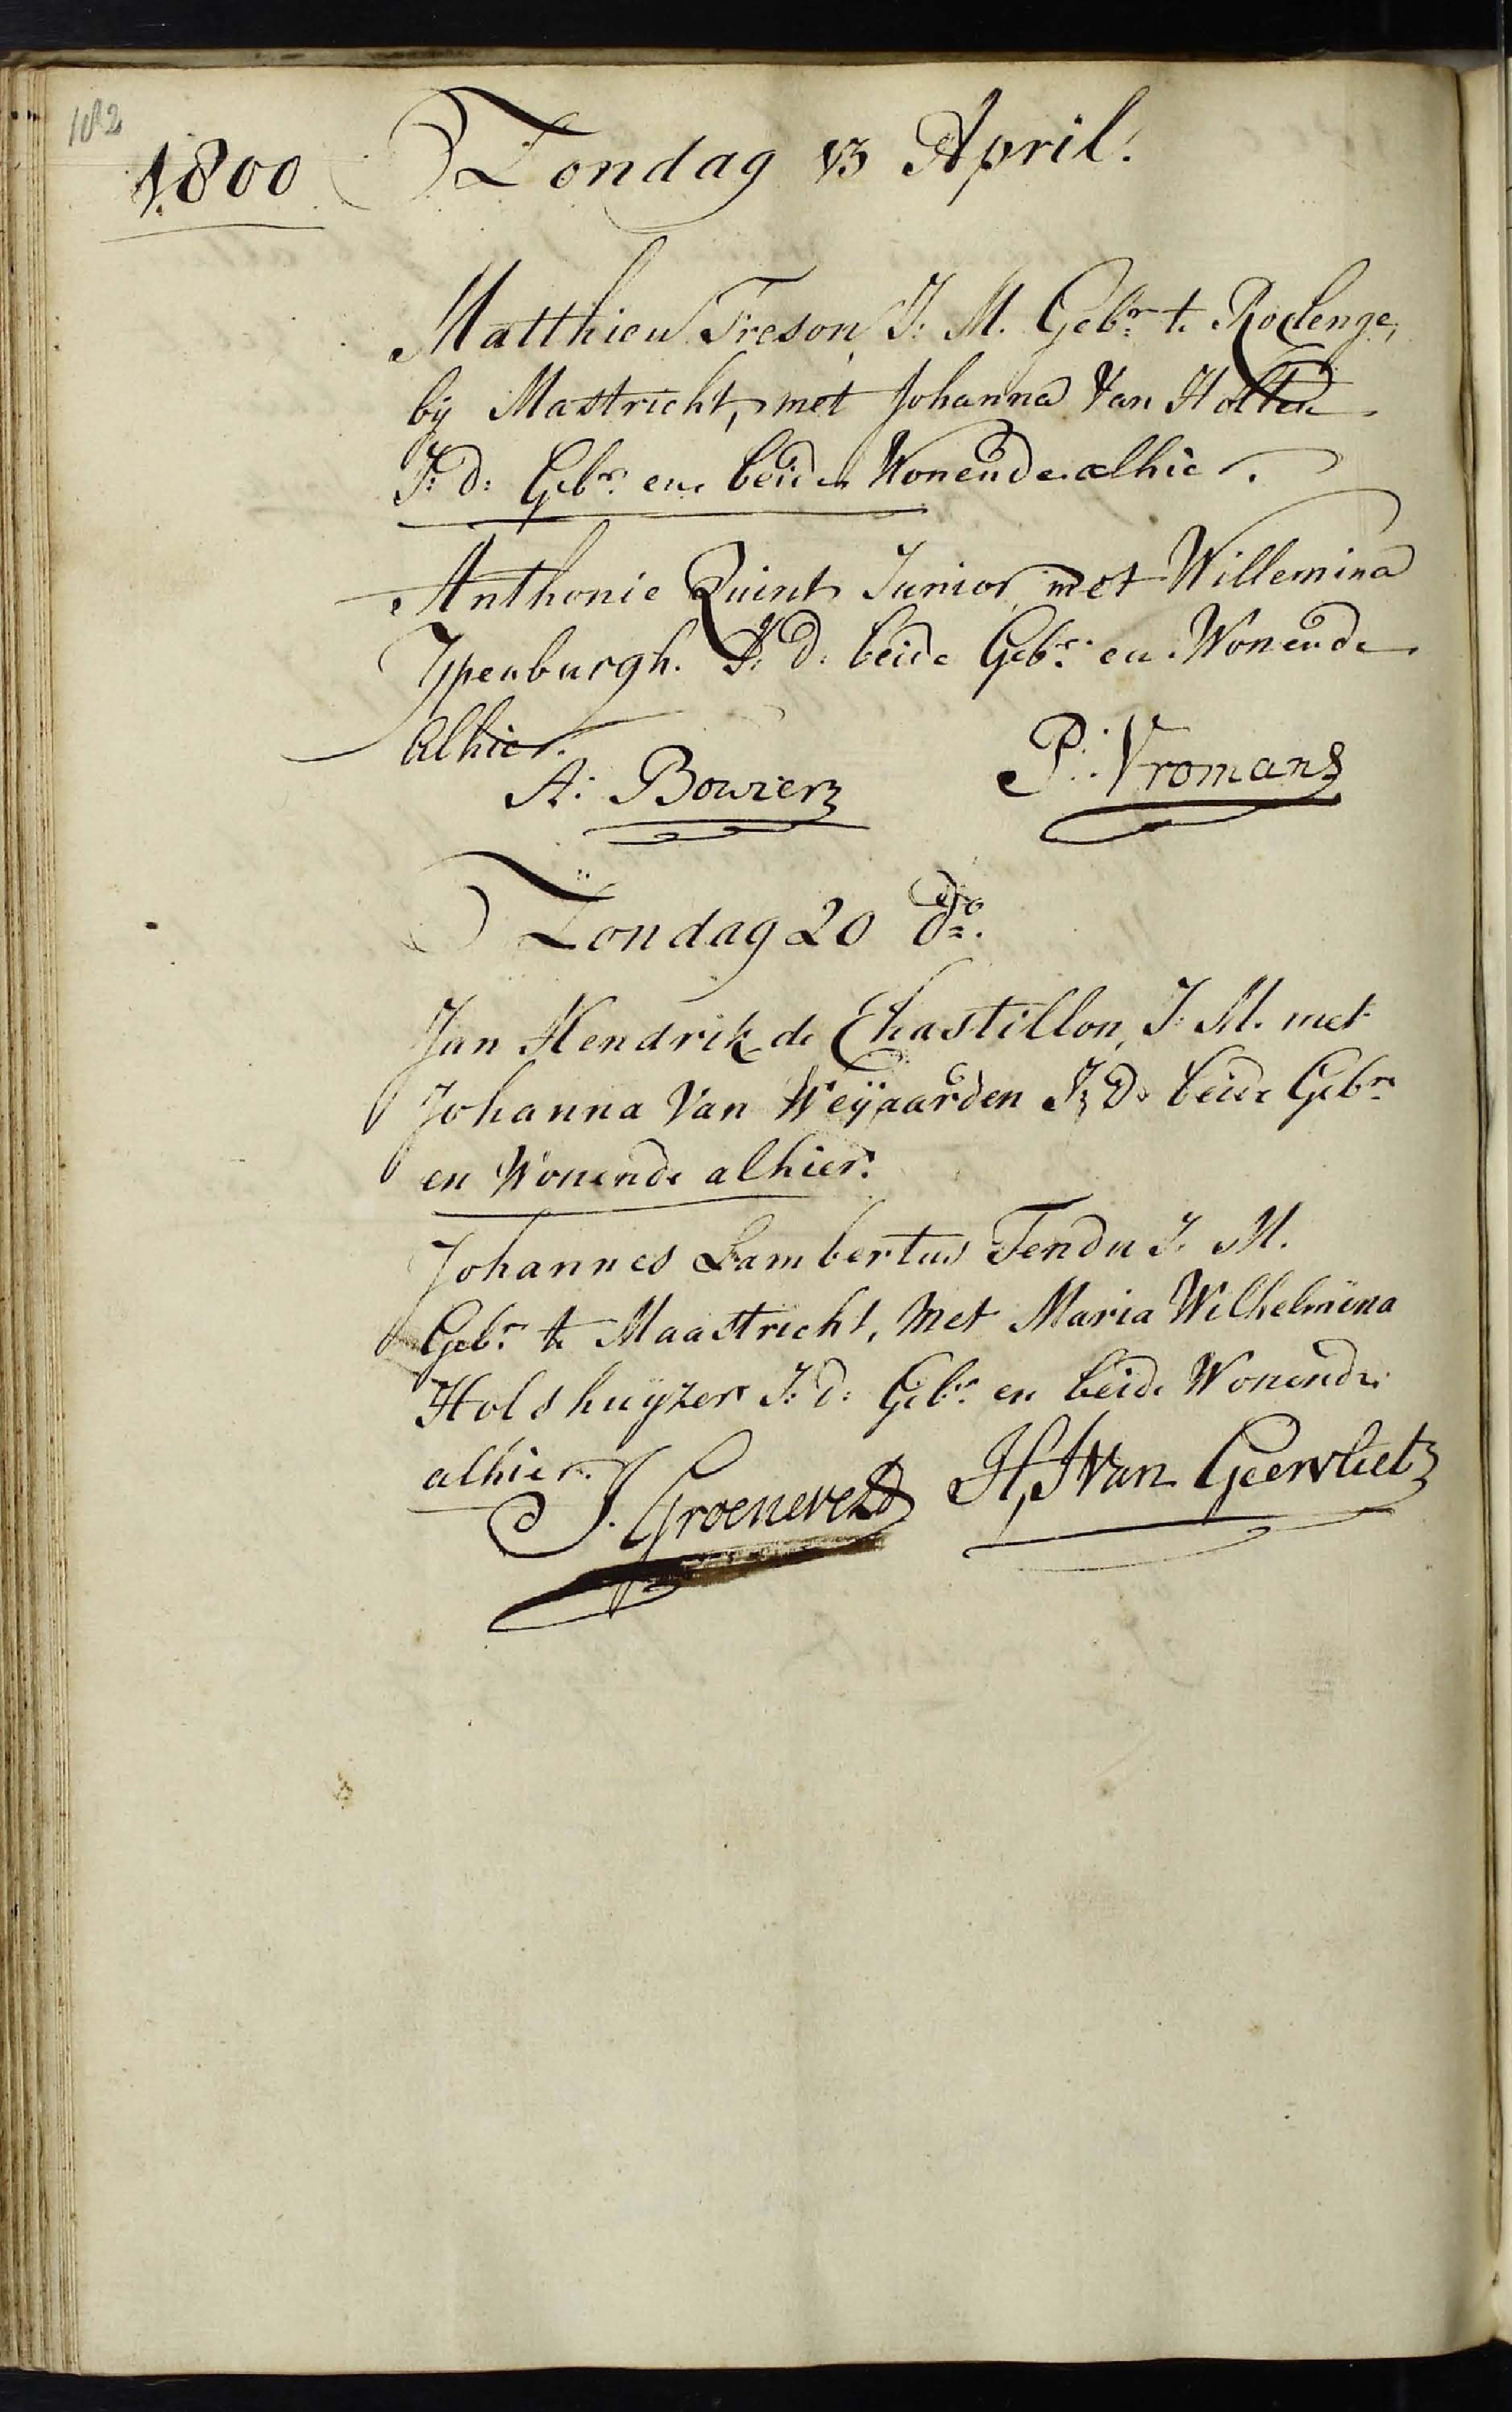 182
1800
Zondag 13 April.
Matthieu Freson, J: M. Gebr. te Roclenge,
bij Mastricht, met Johanna Van Holten
J: d: Gebr. en beiden Wonende alhier.
Anthonie Quint Junior, met Willemina
Ypenburgh. J: d: beide Gebr. en Wonende
Alhier.
A: Bouvier
P: Vromans
Zondag 20 do.
Jan Hendrik de Chastillon, J: M. met
Johanna Van Weÿaarden J: D: beide Gebr.
en Wonende alhier.
Johannes Lambertus Tendu J: M.
Gebr. te Maastricht, met Maria Wilhelmina
Holshuÿzer J: d: Gebr. en beide Wonende
alhier.
J. Groeneveld
H, J Van Geervliet